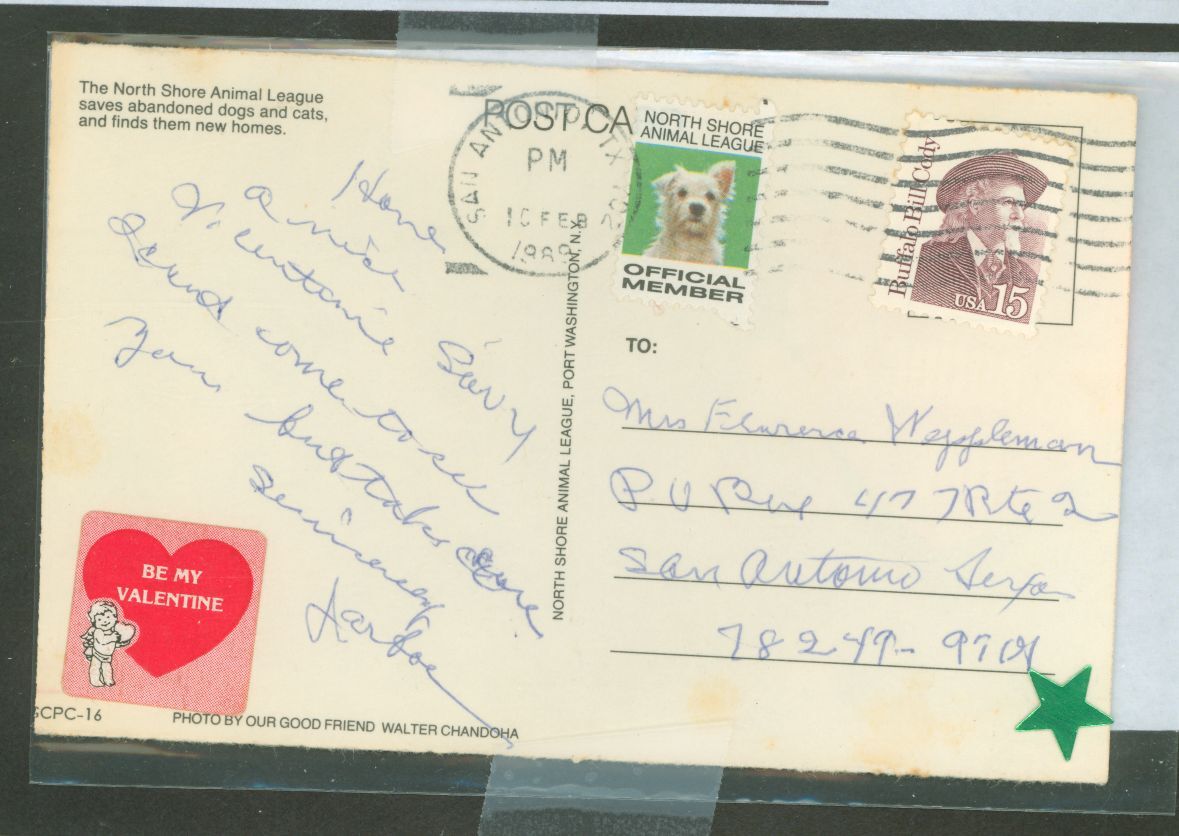 The North Shore Animal League
saves abandoned dogs and cats,
and finds them new homes.
POST CA
SAN ANTONIO, TX
PM
10 FEB
1989
NORTH SHORE
ANIMAL LEAGUE
OFFICIAL
MEMBER
Buffalo Bill Cody
USA 15
Have
a nice
Vilentanie
Sorry
come to see
you but take care
BE MY
VALENTINE
SCPC-16
PHOTO BY OUR GOOD FRIEND WALTER CHANDOHA
NORTH SHORE ANIMAL LEAGUE, PORT WASHINGTON, N.Y.
TO:
Mrs Florence Weppleman
P O Box 477 Rte 2
San Antonio